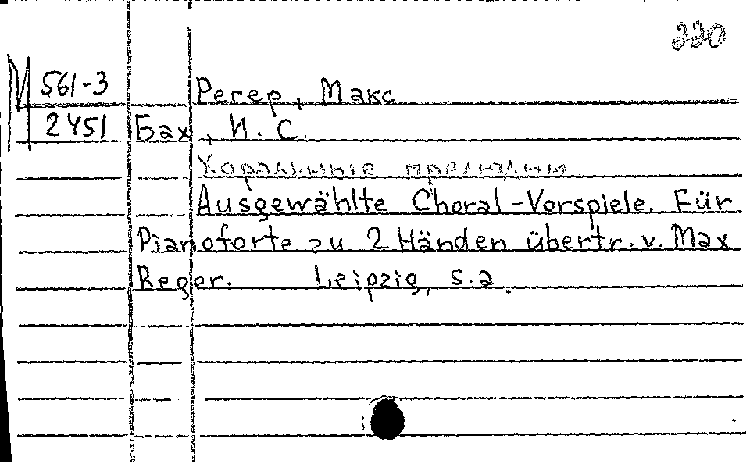 220
М 561-3
2451
Регер, Макс
Бах, И. С.
Хоральные прелюдии
Ausgewählte Choral-Vorspiele. Für
Pianoforte zu 2 Händen übertr. v. Max
Reger. Leipzig, s.a.